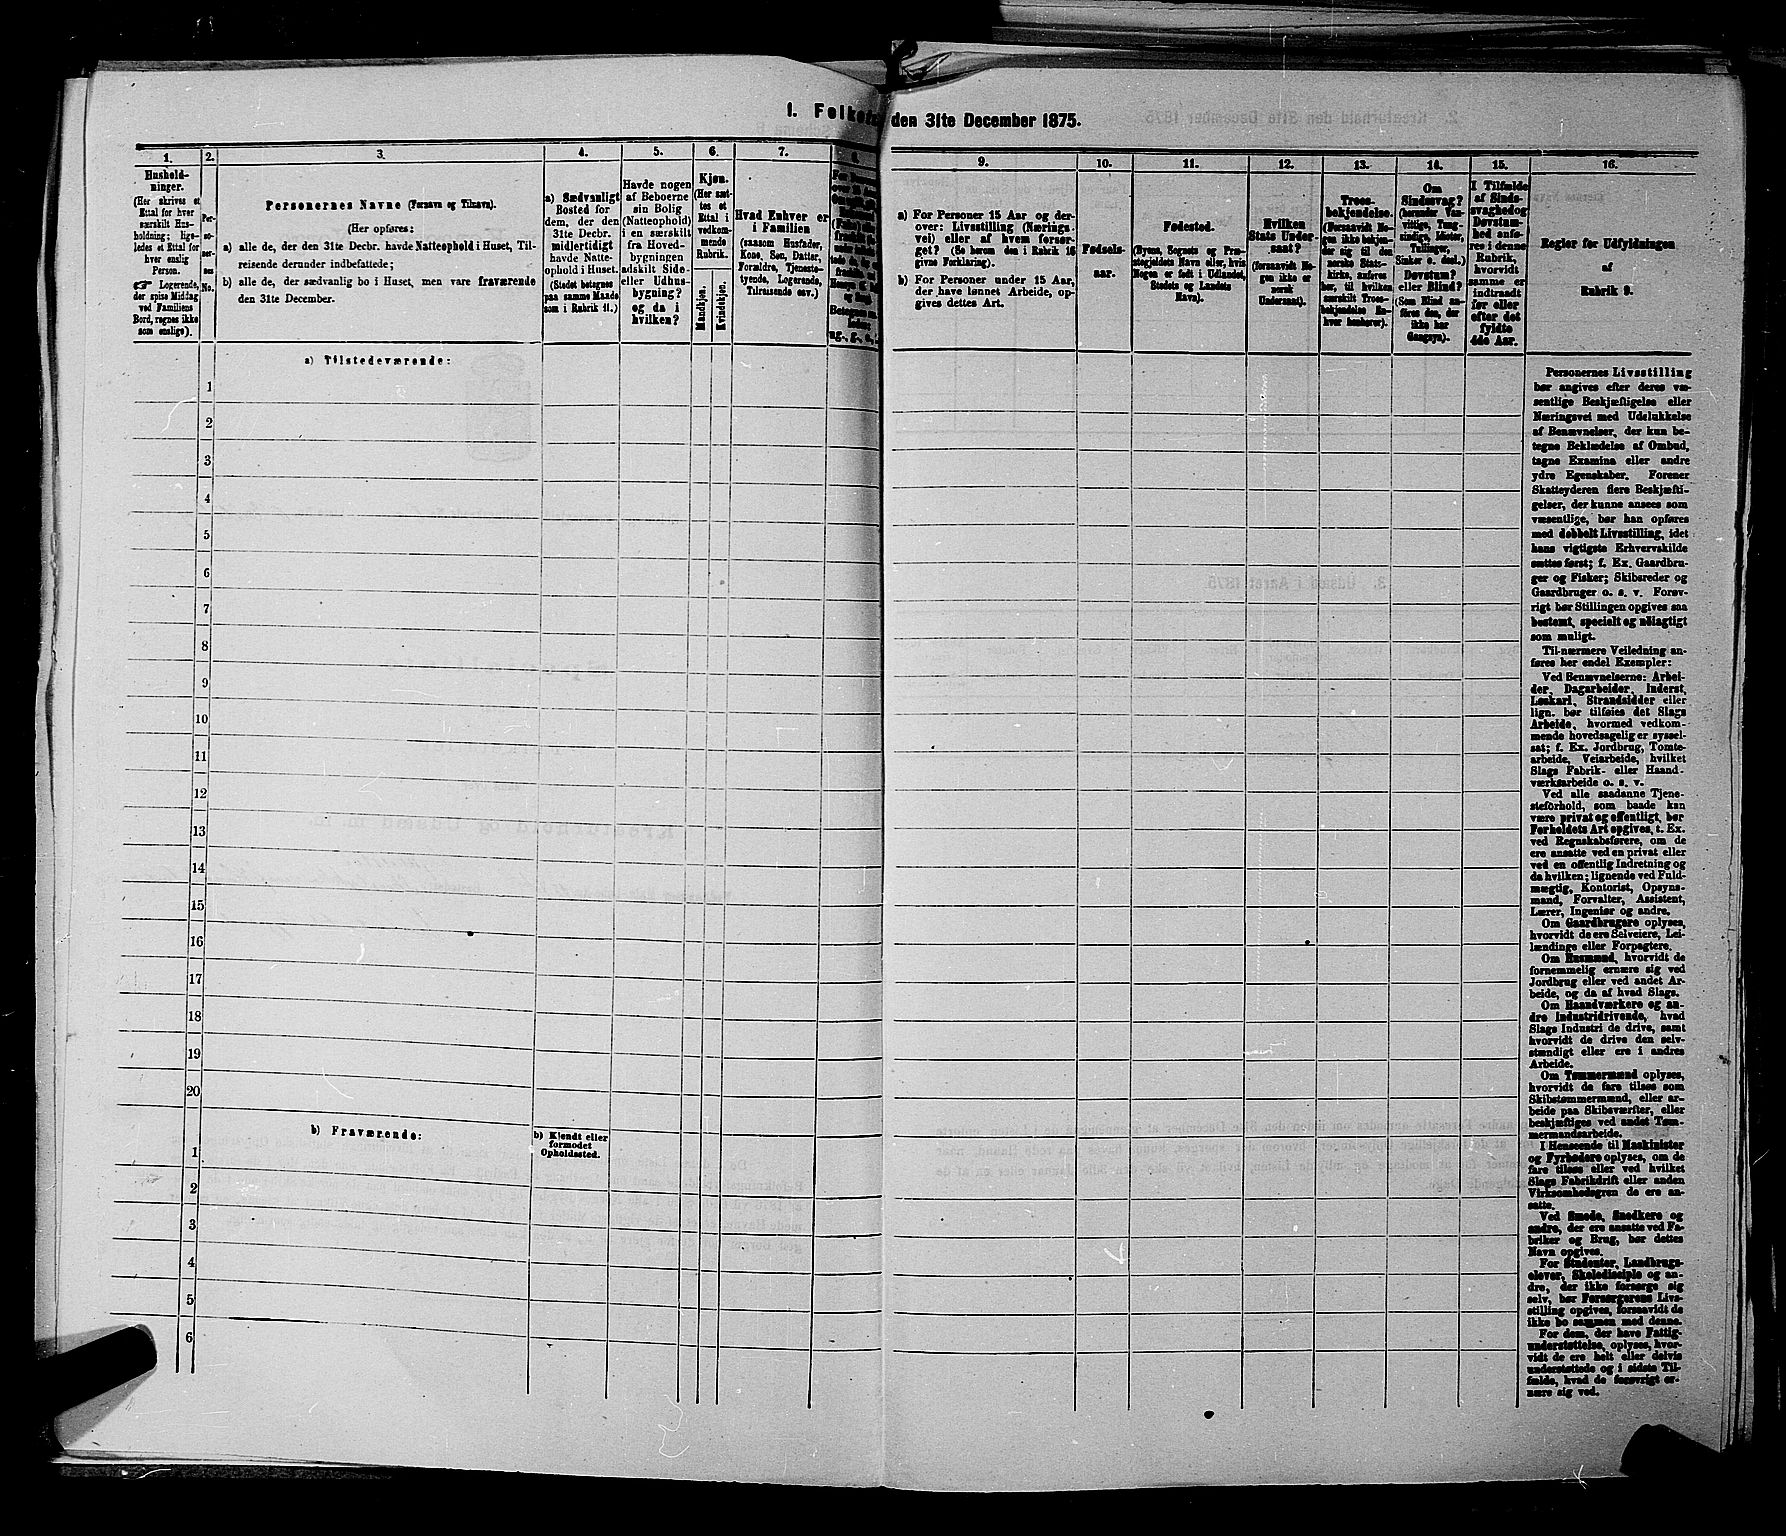 1. Folketæ den 31te December 1875.
1.
Hushold-
ninger.
(Her skrives et
Ettal for hver
særskilt Hus-
holdning; lige-
ledes et Ettal for
hver enslig
Person.
☞ Logerende,
der spise Middag
ved Familiens
Bord, regnes ikke
som enslige).
2.
Per-
so-
ner-
nes
No.
3.
Personernes Navne (Fornavn og Tilnavn).
(Her opføres:
a) alle de, der den 31te Decbr. havde Natteophold i Huset, Til-
reisende derunder indbefattede;
b) alle de, der sædvanlig bo i Huset, men vare fraværende
den 31te December.
4.
a) Sædvanligt
Bosted for
dem, der den
31te Decbr.
midlertidigt
havde Natte-
ophold i Huset.
(Stedet betegnes
paa samme Maade
som i Rubrik 11.)
5.
Havde nogen
af Beboerne
sin Bolig
(Natteophold)
i en særskilt
fra Hoved-
bygningen
adskilt Side-
eller Udhus-
bygning?
og da i
hvilken?
6.
Kjøn.
(Her sæt-
tes et
Ettal i
vedkom-
mende
Rubrik.
Mandkjøn.
Kvindekjøn.
7.
Hvad Enhver er
i Familien
(saasom Husfader,
Kone, Søn, Datter,
Forældre, Tjeneste-
tyende, Logerende,
Tilreisende osv.)
8.
9.
a) For Personer 15 Aar og der-
over: Livsstilling (Nærings-
vei) eller af hvem forsør-
get? (Se herom den i Rubrik 16
givne Forklaring).
b) For Personer under 15 Aar,
der have lønnet Arbeide, op-
gives dettes Art.
10.
Fødsels-
aar.
11.
Fødested.
(Byens, Sognets og Præ-
stegjeldets Navn eller, hvis
Nogen er født i Udlandet,
Stedets og Landets
Navn).
12.
Hvilken
Stats Under-
saat?
(forsaavidt No-
gen ikke er
norsk
Undersaat).
13.
Troes-
bekjendelse.
(Forsaavidt No-
gen ikke bekjen-
der sig til den
norske Stats-
kirke, anføres
her, til hvilken
særskilt Troes-
bekjendelse En-
hver henhører).
14.
Om
Sindssvag?
(herunder Van-
vittige, Tung-
sindige, Idioter,
Tullinger,
Sinker o. desl.)
Døvstum?
eller Blind?
(Som Blind an-
føres den, der
ikke har
Gangsyn).
15.
I Tilfælde
af Sinds-
svaghed og
Døvstum-
hed anfø-
res i denne
Rubrik,
hvorvidt
samme er
indtraadt
før eller
efter det
fyldte
4de Aar.
16.
Regler for Udfyldningen
af
Rubrik 9.
a) Tilstedeværende:
1
2
3
4
5
6
7
8
9
10
11
12
13
14
15
16
17
18
19
20
b) Fraværende:
b) Kjendt eller
formodet
Opholdssted.
1
2
3
4
5
6
Personernes Livsstilling
bør angives efter deres væ-
sentlige Beskjæftigelse eller
Næringsvei med Udelukkelse
af Benævnelser, der kun be-
tegne Beklædelse af Ombud,
tagne Examina eller andre
ydre Egenskaber. Forener
Skatteyderen flere Beskjæfti-
gelser, der kunne ansees som
væsentlige, bør han opføres
med dobbelt Livsstilling, idet
hans vigtigste Erhvervskilde
sættes først; f. Ex. Gaardbru-
ger og Fisker; Skibsreder og
Gaardbruger o. s. v. Forøv-
rigt bør Stillingen opgives saa
bestemt, specielt og nøiagtigt
som muligt.
Til nærmere Veiledning an-
føres her endel Exempler:
Ved Benævnelserne: Arbei-
der, Dagarbeider, Inderst,
Løskarl, Strandsidder eller
lign. bør tilføies det Slags
Arbeide, hvormed vedkom-
mende hovedsagelig er syssel-
sat; f. Ex. Jordbrug, Tomte-
arbeide, Veiarbeide, hvilket
Slags Fabrik- eller Haand-
værksarbeide o. s. v.
Ved alle saadanne Tjene-
steforhold, som baade kan
være privat og offentligt, bør
Forholdets Art opgives, t. Ex.
ved Regnskabsførere, om de
ere ansatte ved en privat eller
ved en offentlig Indretning og
da hvilken; lignende ved Fuld-
mægtig, Kontorist, Opsyns-
mand, Forvalter, Assistent,
Lærer, Ingeniør og andre.
Om Gaardbrugere oplyses,
hvorvidt de ere Selveiere, Lei-
lændinge eller Forpagtere.
Om Husmænd, hvorvidt de
fornemmelig ernære sig ved
Jordbrug eller ved andet Ar-
beide, og da af hvad Slags.
Om Haandværkere og an-
dre Industridrivende, hvad
Slags Industri de drive, samt
hvorvidt de drive den selv-
stændigt eller ere i andres
Arbeide.
Om Tømmermænd oplyses,
hvorvidt de fare tilsøs som
Skibstømmermænd, eller ar-
beide paa Skibsværfter, eller
beskjæftiges ved andet Tøm-
mermandsarbeide.
I Henseende til Maskinister
og Fyrbødere oplyses, om de
fare tilsøs eller ved hvilket
Slags Fabrikdrift eller anden
Virksomhedsgren de ere an-
satte.
Ved Smede, Snedkere og
andre, der ere ansatte ved Fa-
briker og Brug, bør dettes
Navn opgives.
For Studenter, Landbrugs-
elever, Skoledisciple og an-
dre, der ikke forsørge sig
selv, bør Forsørgerens Livs-
stilling opgives, forsaavidt de
ikke bo sammen med denne.
For dem, der have Fattig-
understøttelse, oplyses, hvor-
vidt de ere helt eller delvis
understøttede og i sidste Til-
fælde, hvad de forøvrigt er-
nære sig ved.